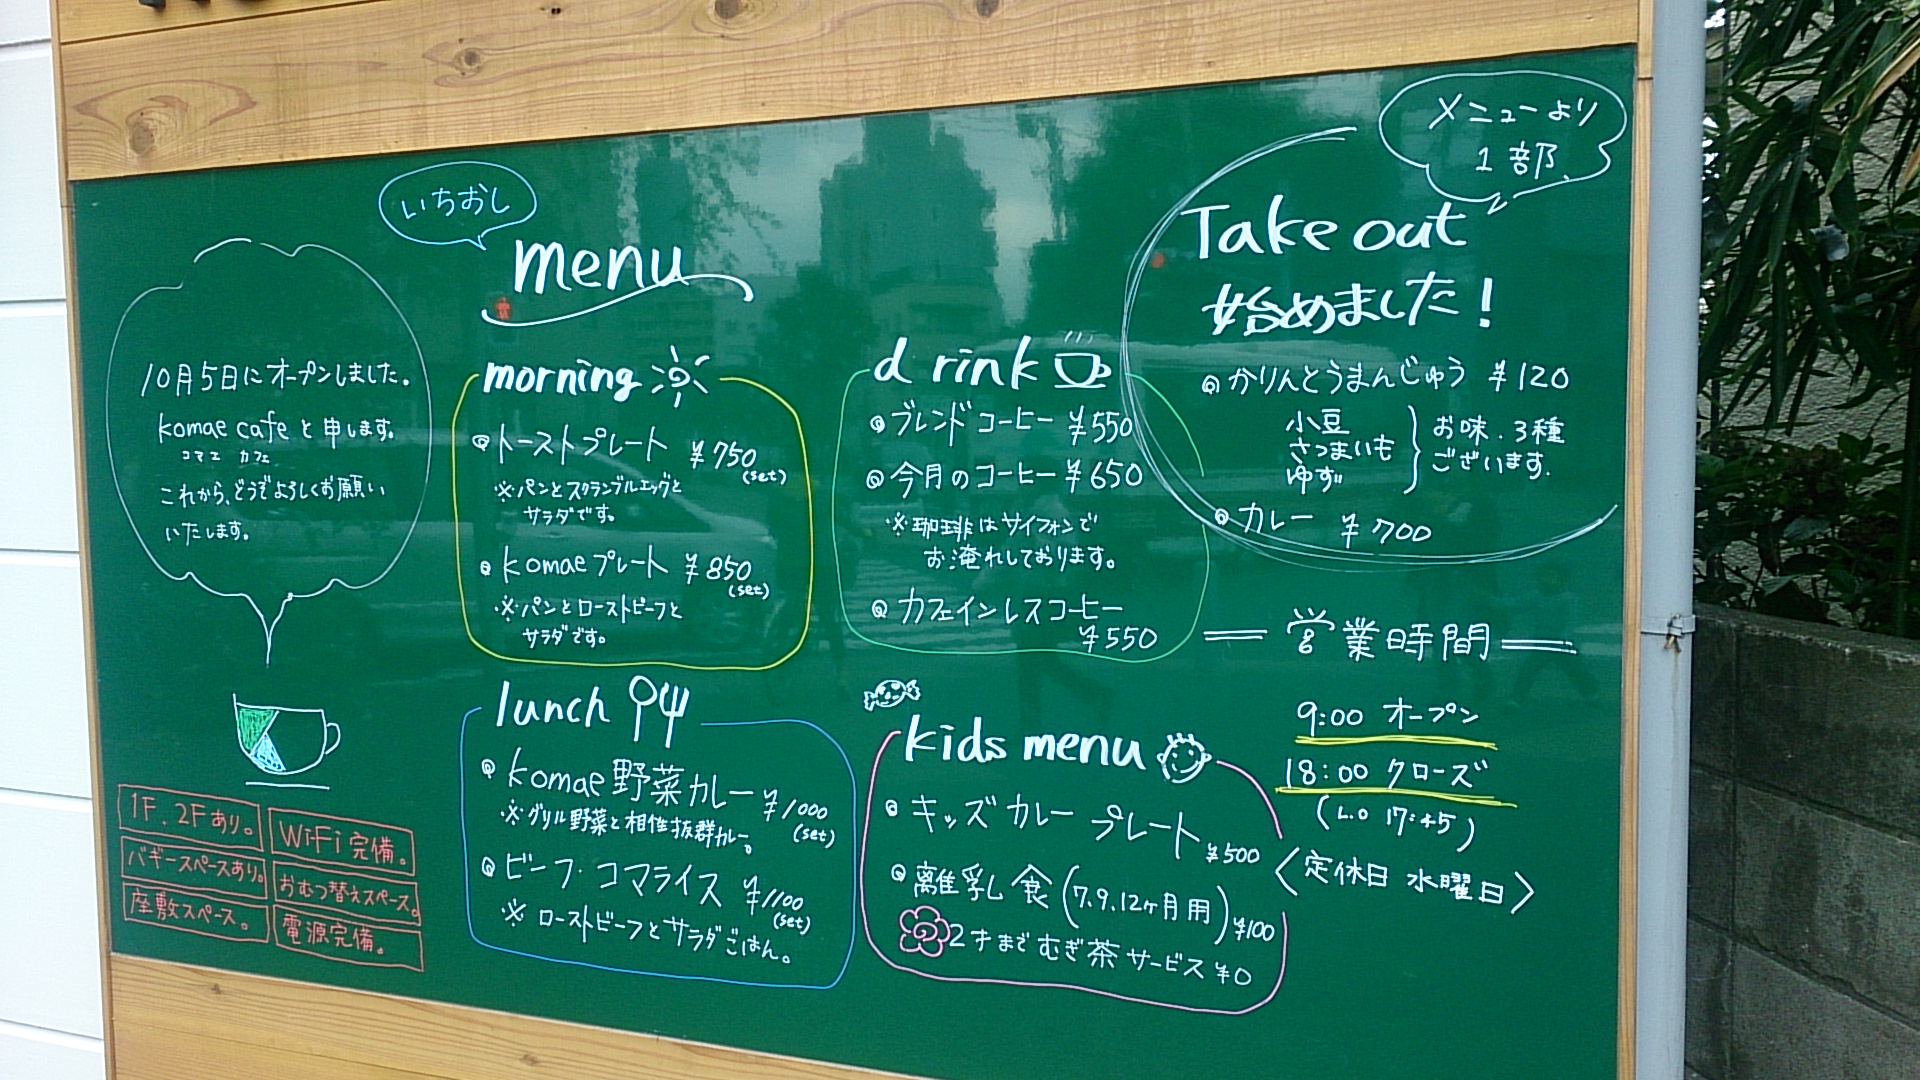 いちおし
menu
10月5日にオープンしました。
komae cafe と申します。
コマエ カフェ
これから、どうぞよろしくお願い
いたします。
1F.2Fあり。
WiFi完備。
バギースペースあり。
おむつ替えスペース。
座敷スペース。
電源完備。
morning
トーストプレート ¥750
(set)
※パンとスクランブルエッグと
サラダです。
komaeプレート ¥850
(set)
※パンとローストビーフと
サラダです。
lunch
komae野菜カレー ¥1000
(set)
※グリル野菜と相性抜群カレー。
ビーフ・コマライス ¥1100
(set)
※ローストビーフとサラダごはん。
drink
ブレンドコーヒー ¥550
今月のコーヒー ¥650
※珈琲はサイフォンで
お淹れしております。
カフェインレスコーヒー
¥550
kids menu
キッズカレープレート ¥500
離乳食(7.9.12ヶ月用) ¥100
2才までむぎ茶サービス ¥0
メニューより
1部、
Take out
始めました!
かりんとうまんじゅう ¥120
小豆
さつまいも
ゆず
お味.3種
ございます.
カレー ¥700
営業時間
9:00 オープン
18:00 クローズ
(L.O 17:45)
〈定休日 水曜日〉